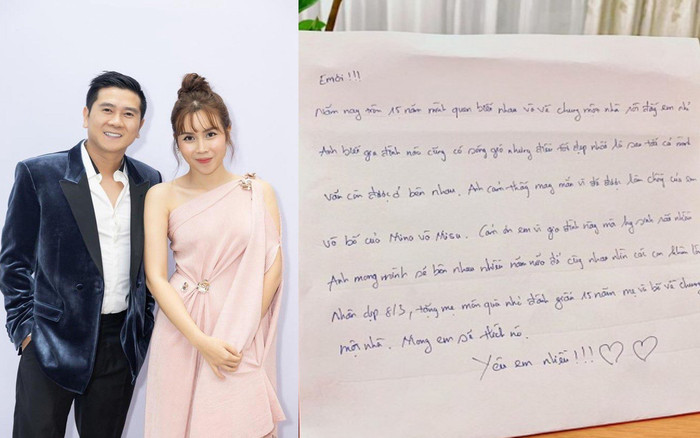 Em ơi!!!
Năm nay tròn 15 năm mình quen biết nhau và về chung một nhà rồi đấy em nhỉ
Anh biết gia đình nào cũng có sóng gió nhưng điều tốt đẹp nhất là sau tất cả mình
vẫn còn được ở bên nhau. Anh cảm thấy may mắn vì đã được làm chồng của em
và bố của Mina và Misu. Cảm ơn em vì gia đình này mà hy sinh rất nhiều
Anh mong mình sẽ bên nhau nhiều năm nữa để cùng nhau nhìn các con khôn lớn
Nhân dịp 8/3, tặng mẹ món quà nhỏ đánh giấu 15 năm mẹ và bố về chung
một nhà. Mong em sẽ thích nó.
Yêu em nhiều!!!